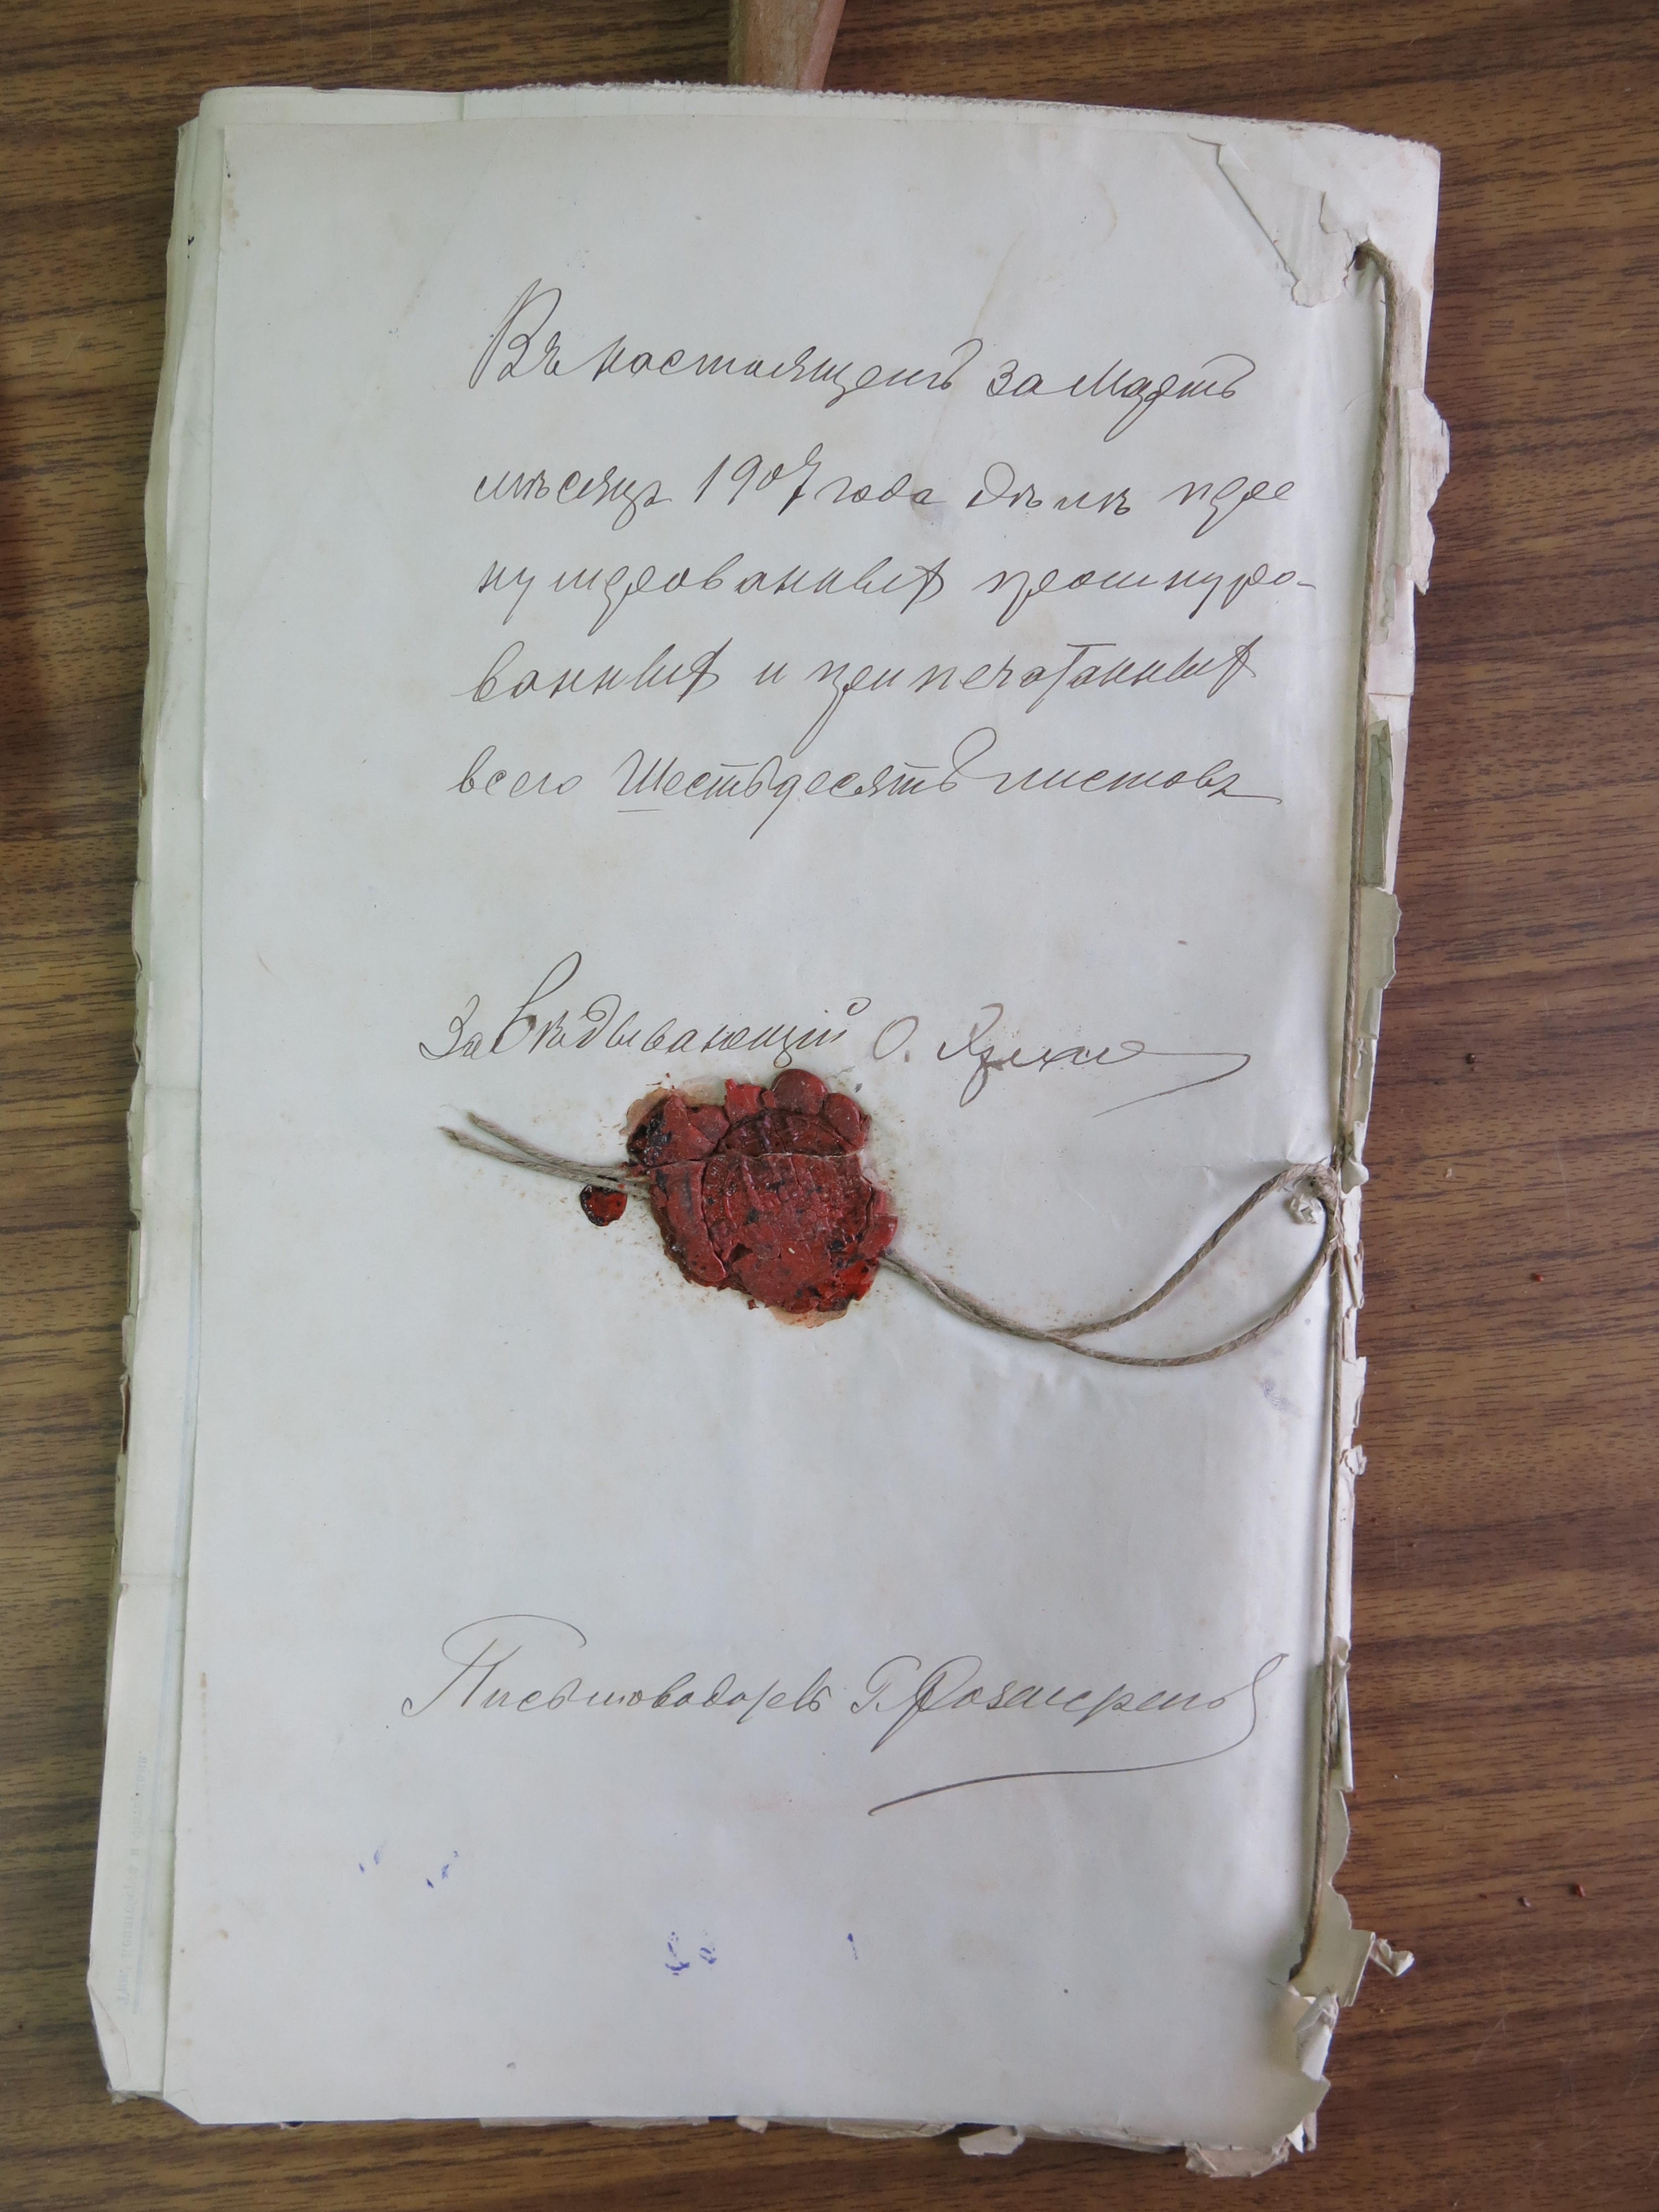 Въ настоящемъ за Мартъ
мѣсяцъ 1907 года дѣлѣ пре
нумерованныхъ прошнуро-
ванныхъ и припечатанныхъ
всего Шестьдесятъ листовъ
Завѣдывающій О.
Письмоводорель Г.